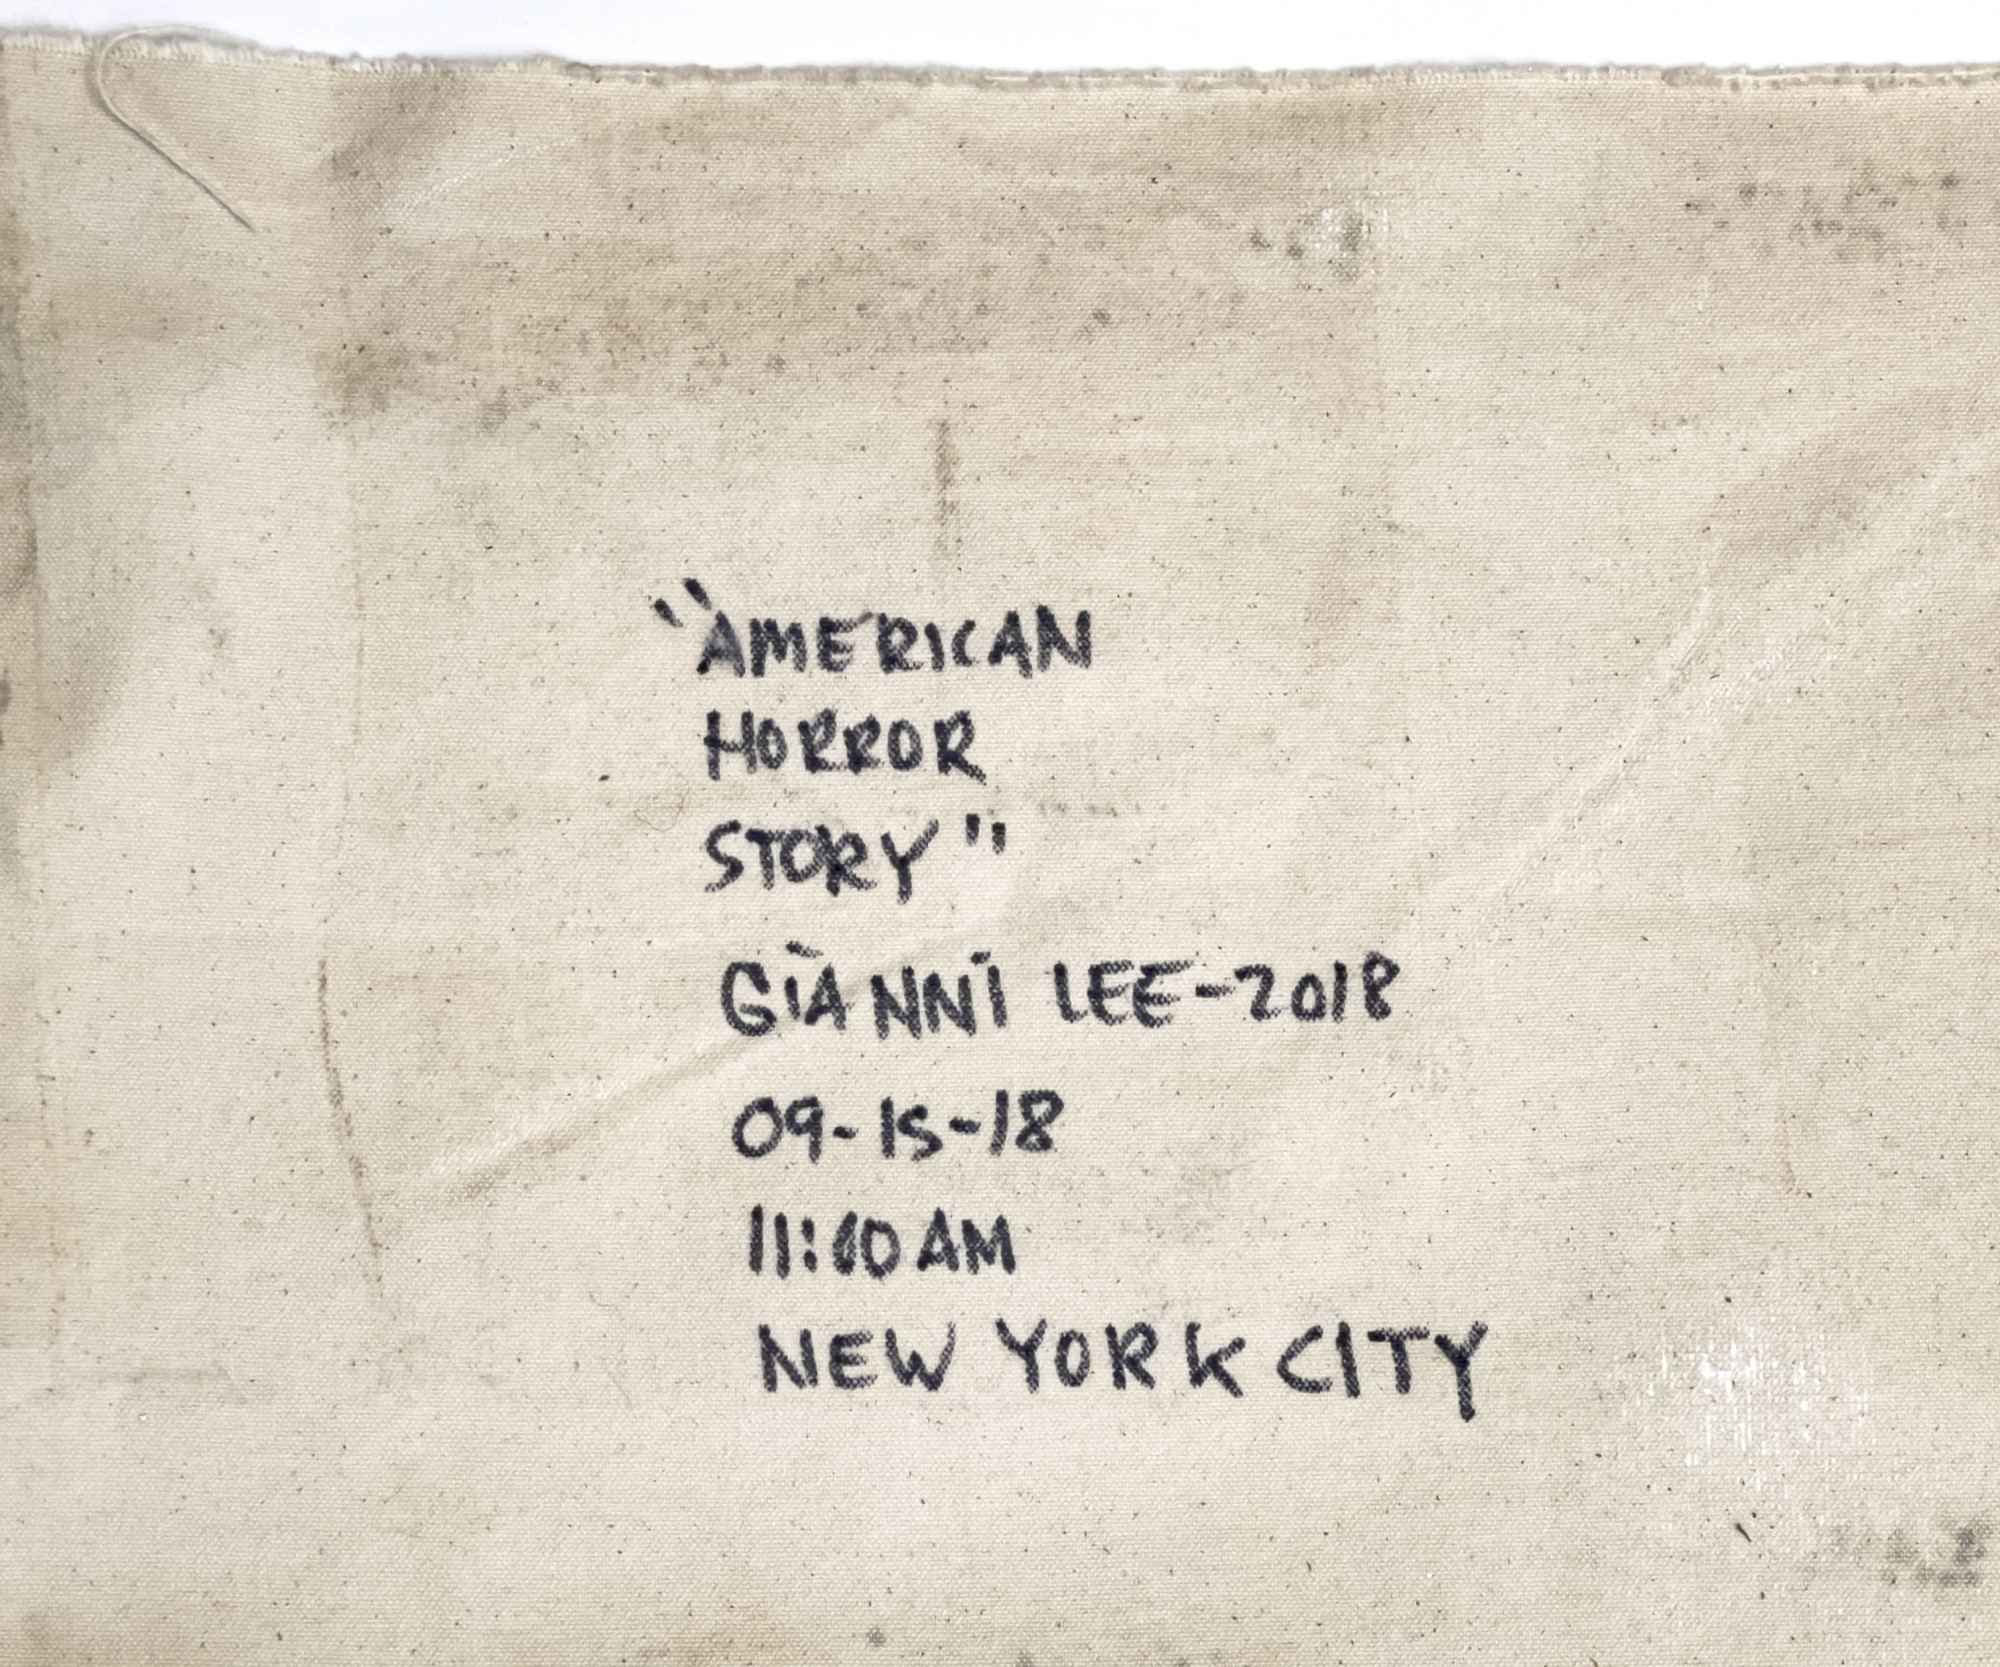 "AMERICAN
HORROR
STORY"
GIANNI LEE-2018
09-15-18
11:00AM
NEW YORK CITY